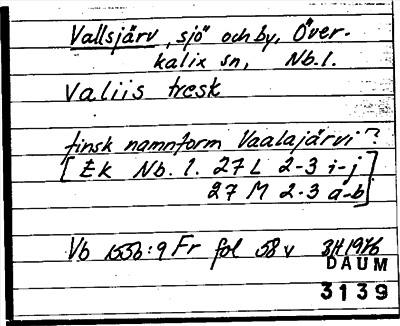 Vallsjärv, sjö och by, Över-
kalix sn, Nb.l.
Valiis tresk
finsk namnform Vaalajärvi?
[Ek Nb. l. 27 L 2-3 i-j
27 M 2-3 a-b]
Vb 1556:9 Fr fol 58 v 3/4 1976
DAUM
3139